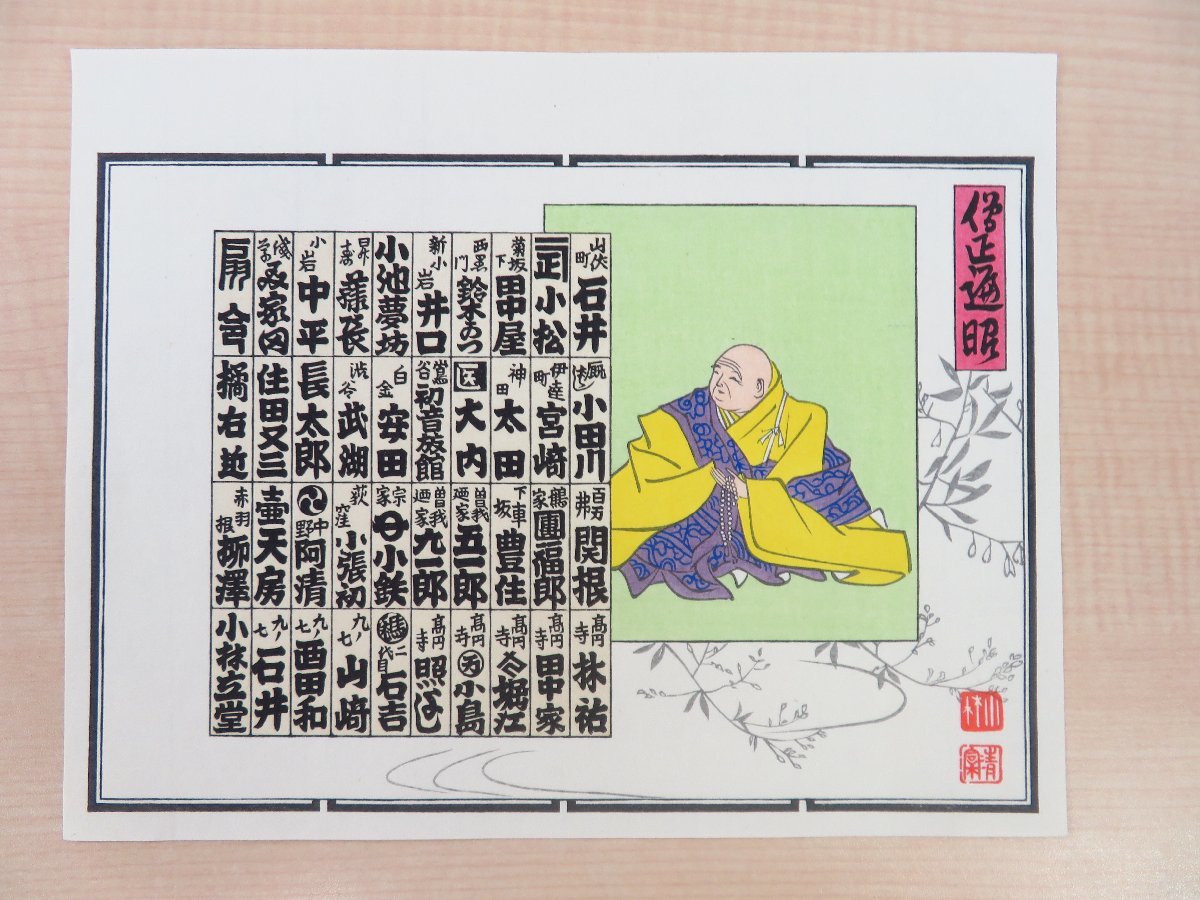 僧正遍昭
山伏町 石井
正 小松
菊坂下 田中屋
西黒門 鈴木
新小岩 井口
小池夢坊
昇寿
小岩 中平
住田又三
小田川
伊達町 宮崎
神田 太田
医 大内
鶯谷 初音旅館
白金 安田
渋谷 武湖
長太郎
橘右近
百万弗 関根
鶴家 團福郎
下車坂 豊住
曽我廼家 五一郎
曽我廼家 九一郎
宗家 小鉄
荻窪 小張初
中野 阿清
壷天房
赤羽根 柳澤
高円寺 林祐
高円寺 田中家
高円寺 堀江
高円寺 天 小島
高円寺 照ばし
二代目 石吉
九ノ七 山崎
九ノ七 西田和
九ノ七 石井
小林立堂